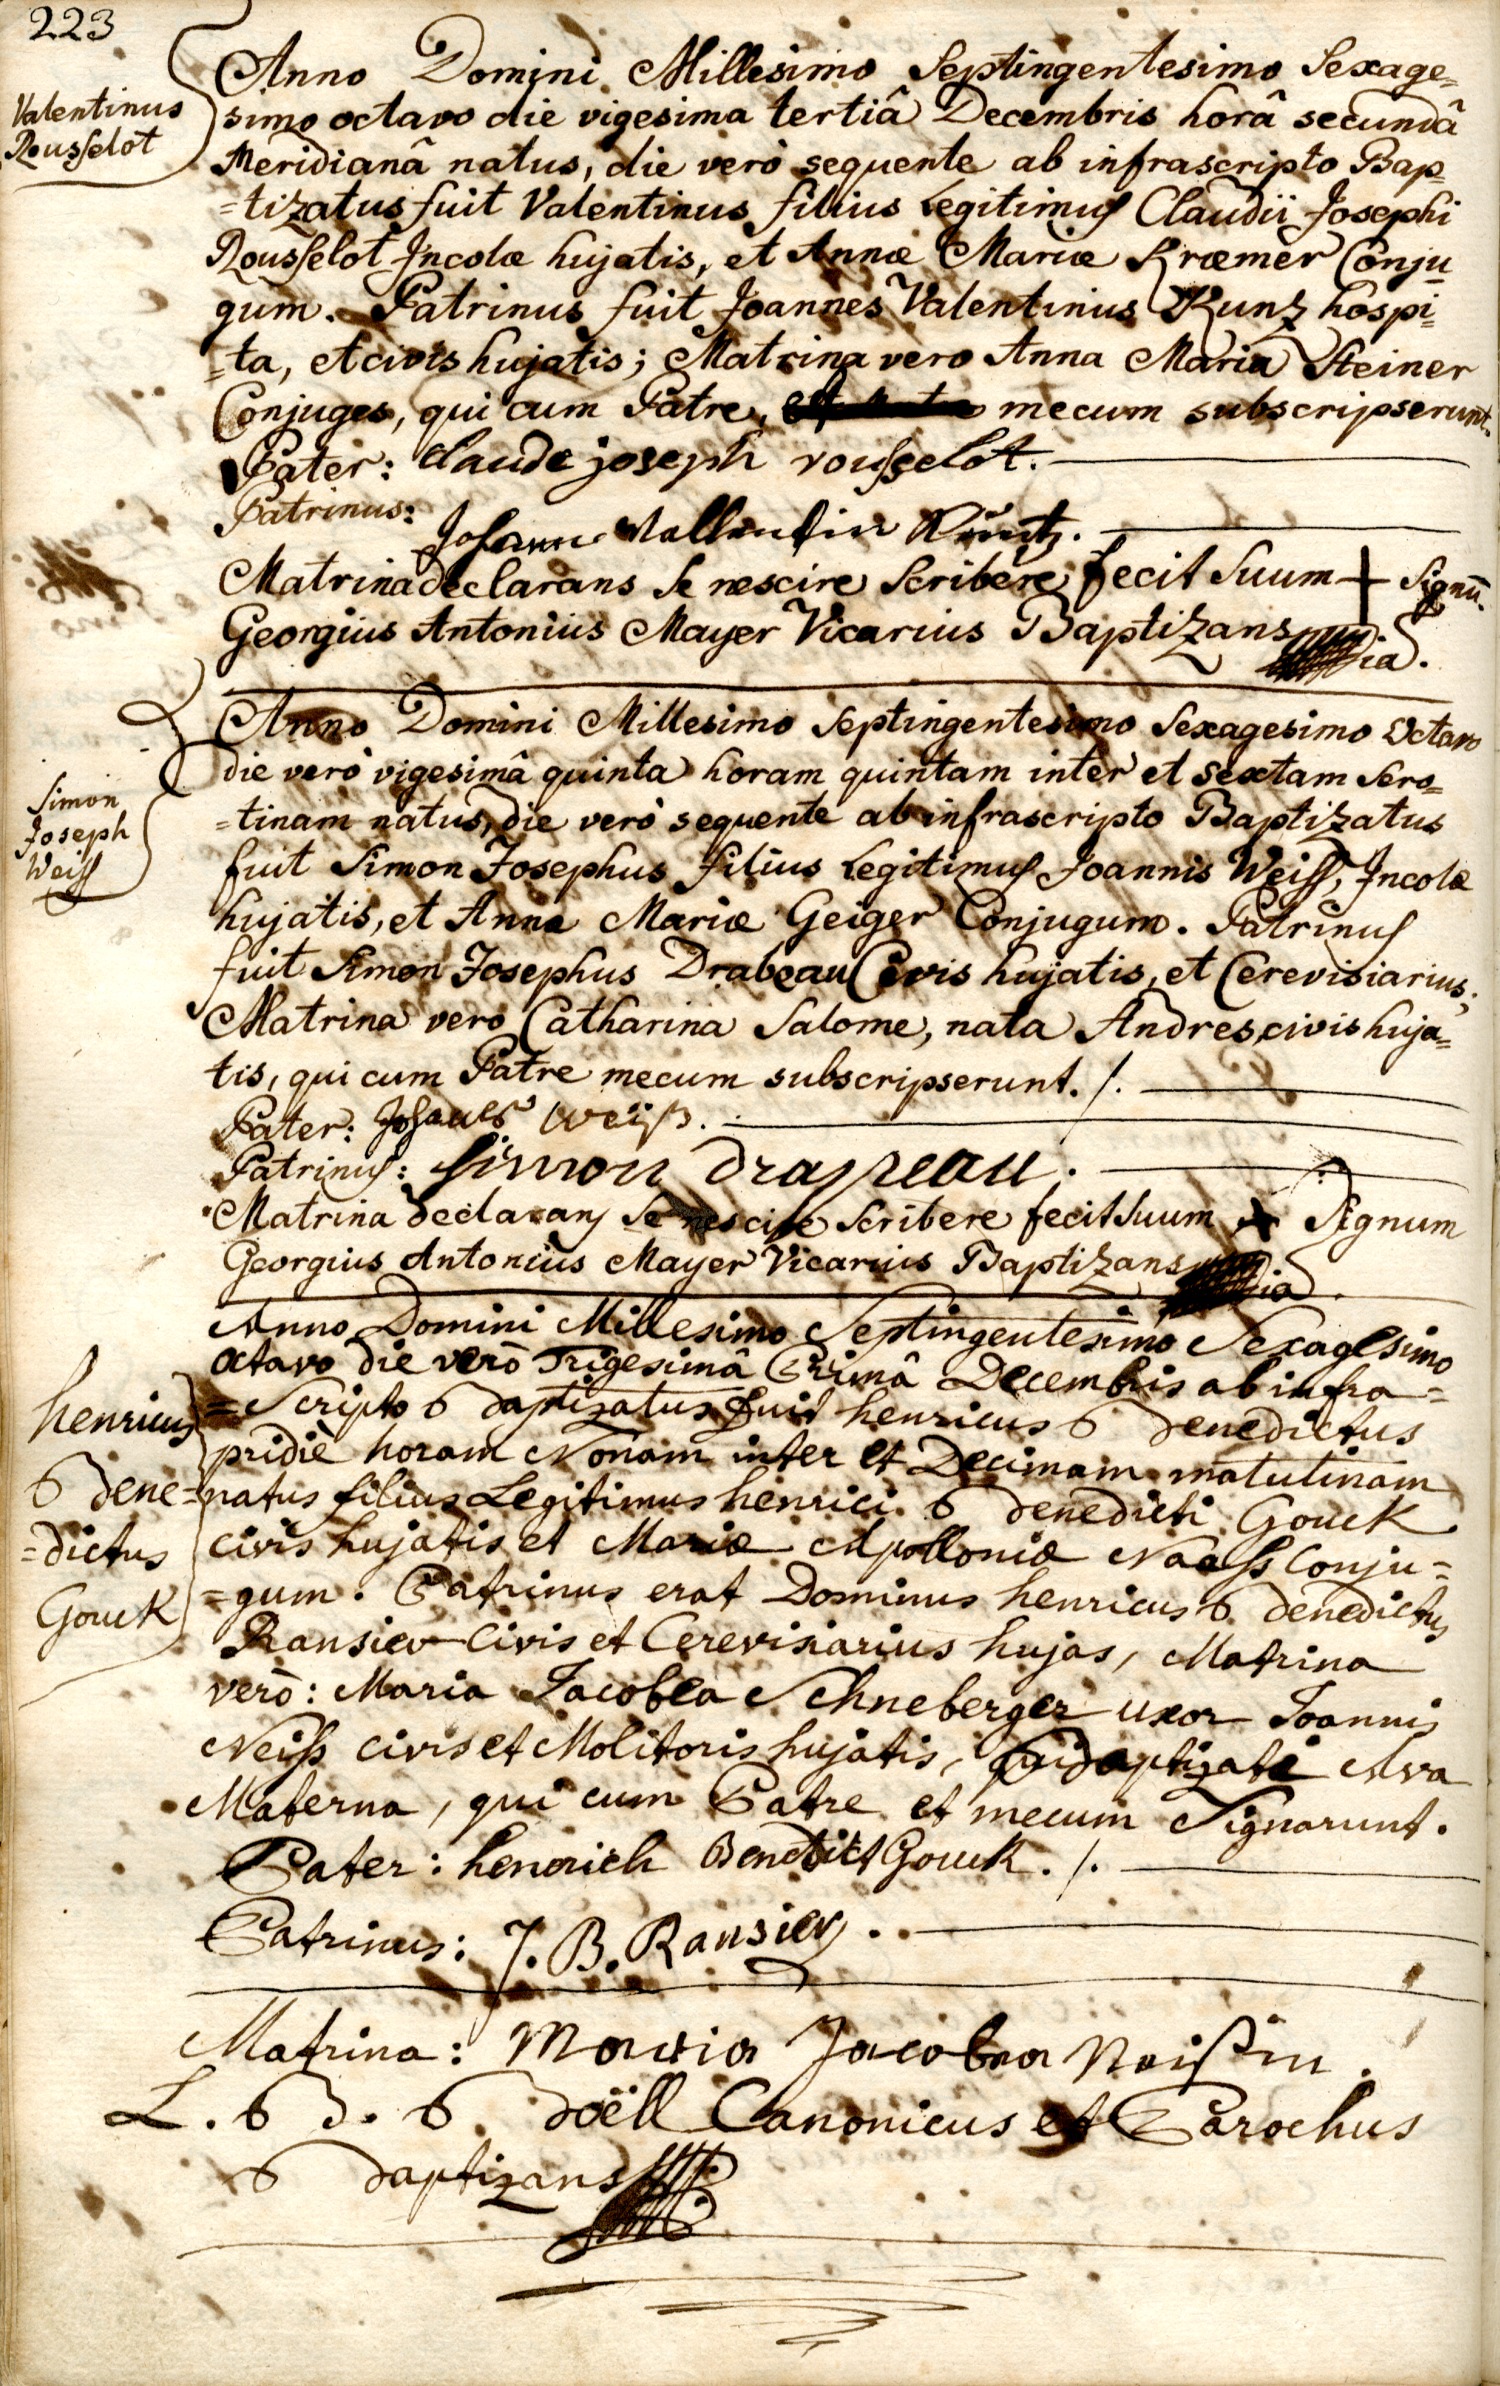 223
Valentinus
Rousselot
Anno Domini Millesimo Septingentesimo Sexage=
simo octavo die vigesima tertiâ Decembris horâ secundâ
Meridianâ natus, die verò sequente ab infrascripto Bap
=tizatus fuit Valentinus filius legitimus Claudii Josephi
Rousselot Incolæ hujatis, et Annæ Mariæ Kræmer Conju
gum. Patrinus fuit Joannes Valentinius Kunz hospi=
=ta, et civis hujatis; Matrina vero Anna Maria Steiner
Conjuges, qui cum Patre, mecum subscripserunt.
Pater: Claude joseph rousselot.
Patrinus: Johann Vallentin Kuntz.
Matrina declarans se nescire scribere fecit suum + Signū.
Georgius Antonius Mayer Vicarius Baptizans
Simon
Joseph
Weiss
Anno Domini Millesimo Septingentesimo Sexagesimo Octavo
die verò vigesimâ quinta horam quintam inter et sextam Sero=
=tinam natus, die verò sequente ab infrascripto Baptizatus
fuit Simon Josephus filius legitimus Joannis Weiss, Incolæ
hujatis, et Annæ Mariæ Geiger Conjugum. Patrinus
fuit Simon Josephus Drabeau Civis hujatis, et Cerevisiarius;
Matrina vero Catharina Salome, nata Andres, civis huja=
tis, qui cum Patre mecum subscripserunt. /.
Pater: Johanes Weiß.
Patrinus: Simon drapeau.
Matrina declarans se nescire scribere fecit suum + Signum
Georgius Antonius Mayer Vicarius Baptizans
henricus
Bene=
=dictus
Gouck
Anno Domini Millesimo Septingentesimo Sexagesimo
octavo die verò Trigesimâ Primâ Decembris ab infra=
=Scripto Baptizatus fuit henricus Benedictus
pridiè horam Nonam inter et Decimam matutinam
natus filius Legitimus henrici Benedicti Gouck
civis hujatis et Mariæ Apolloniæ Naass Conju=
=gum. Patrinus erat Dominus henricus Benedictus
Ransier Civis et Cerevisiarius hujas, Matrina
verò: Maria Jacobea Schneberger uxor Joannis
Neiss civis et Molitoris hujatis, Baptizati Ava
Materna, qui cum Patre et mecum Signarunt.
Pater: henrich Benedict Gouck. /.
Patrinus: J. B. Ransier.
Matrina: Maria Jacobea Neißin.
L. B. Boëll Canonicus et Parochus
Baptizans